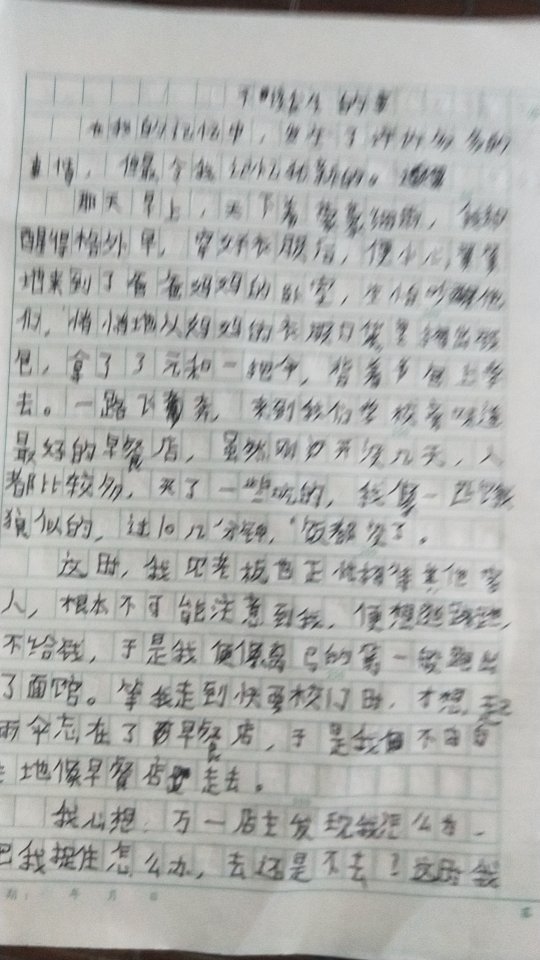 的事
在我的记忆中，发生了许许多多的
事情，但最令我记忆犹新的。
那天早上，天下着蒙蒙细雨，我
醒得格外早，穿好衣服后，便小心翼翼
地来到了爸爸妈妈的卧室，生怕吵醒他
们，悄悄地从妈妈的衣服口袋里掏出钱
包，拿了3元和一把伞，背着书包上学
去。一路飞奔，来到我们学校旁味道
最好的早餐店，虽然刚刚开没几天，人
都比较多，买了一些吃的，我像一匹饿
狼似的，过10几分钟，饭都没了。
这时，我见老板也正忙招待其他客
人，根本不可能注意到我，便想跑，
不给钱，于是我便像离弓的箭一般跑出
了面馆。等我走到快要校门时，才想起
雨伞忘在了早餐店，于是我不由自
主地像早餐店走去。
我心想：万一店主发现我怎么办，
把我捉住怎么办，去还是不去？这时我
期： 年 月 日
第